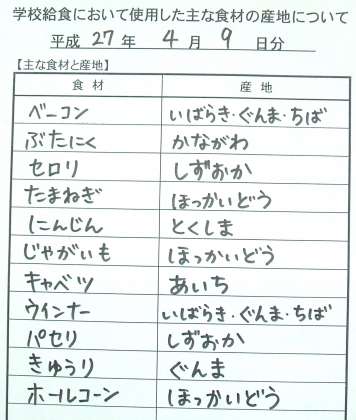 学校給食において使用した主な食材の産地について
平成 27 年 4 月 9 日分
【主な食材と産地】
食材 産地
ベーコン いばらき・ぐんま・ちば
ぶたにく かながわ
セロリ しずおか
たまねぎ ほっかいどう
にんじん とくしま
じゃがいも ほっかいどう
キャベツ あいち
ウインナー いばらき・ぐんま・ちば
パセリ しずおか
きゅうり ぐんま
ホールコーン ほっかいどう